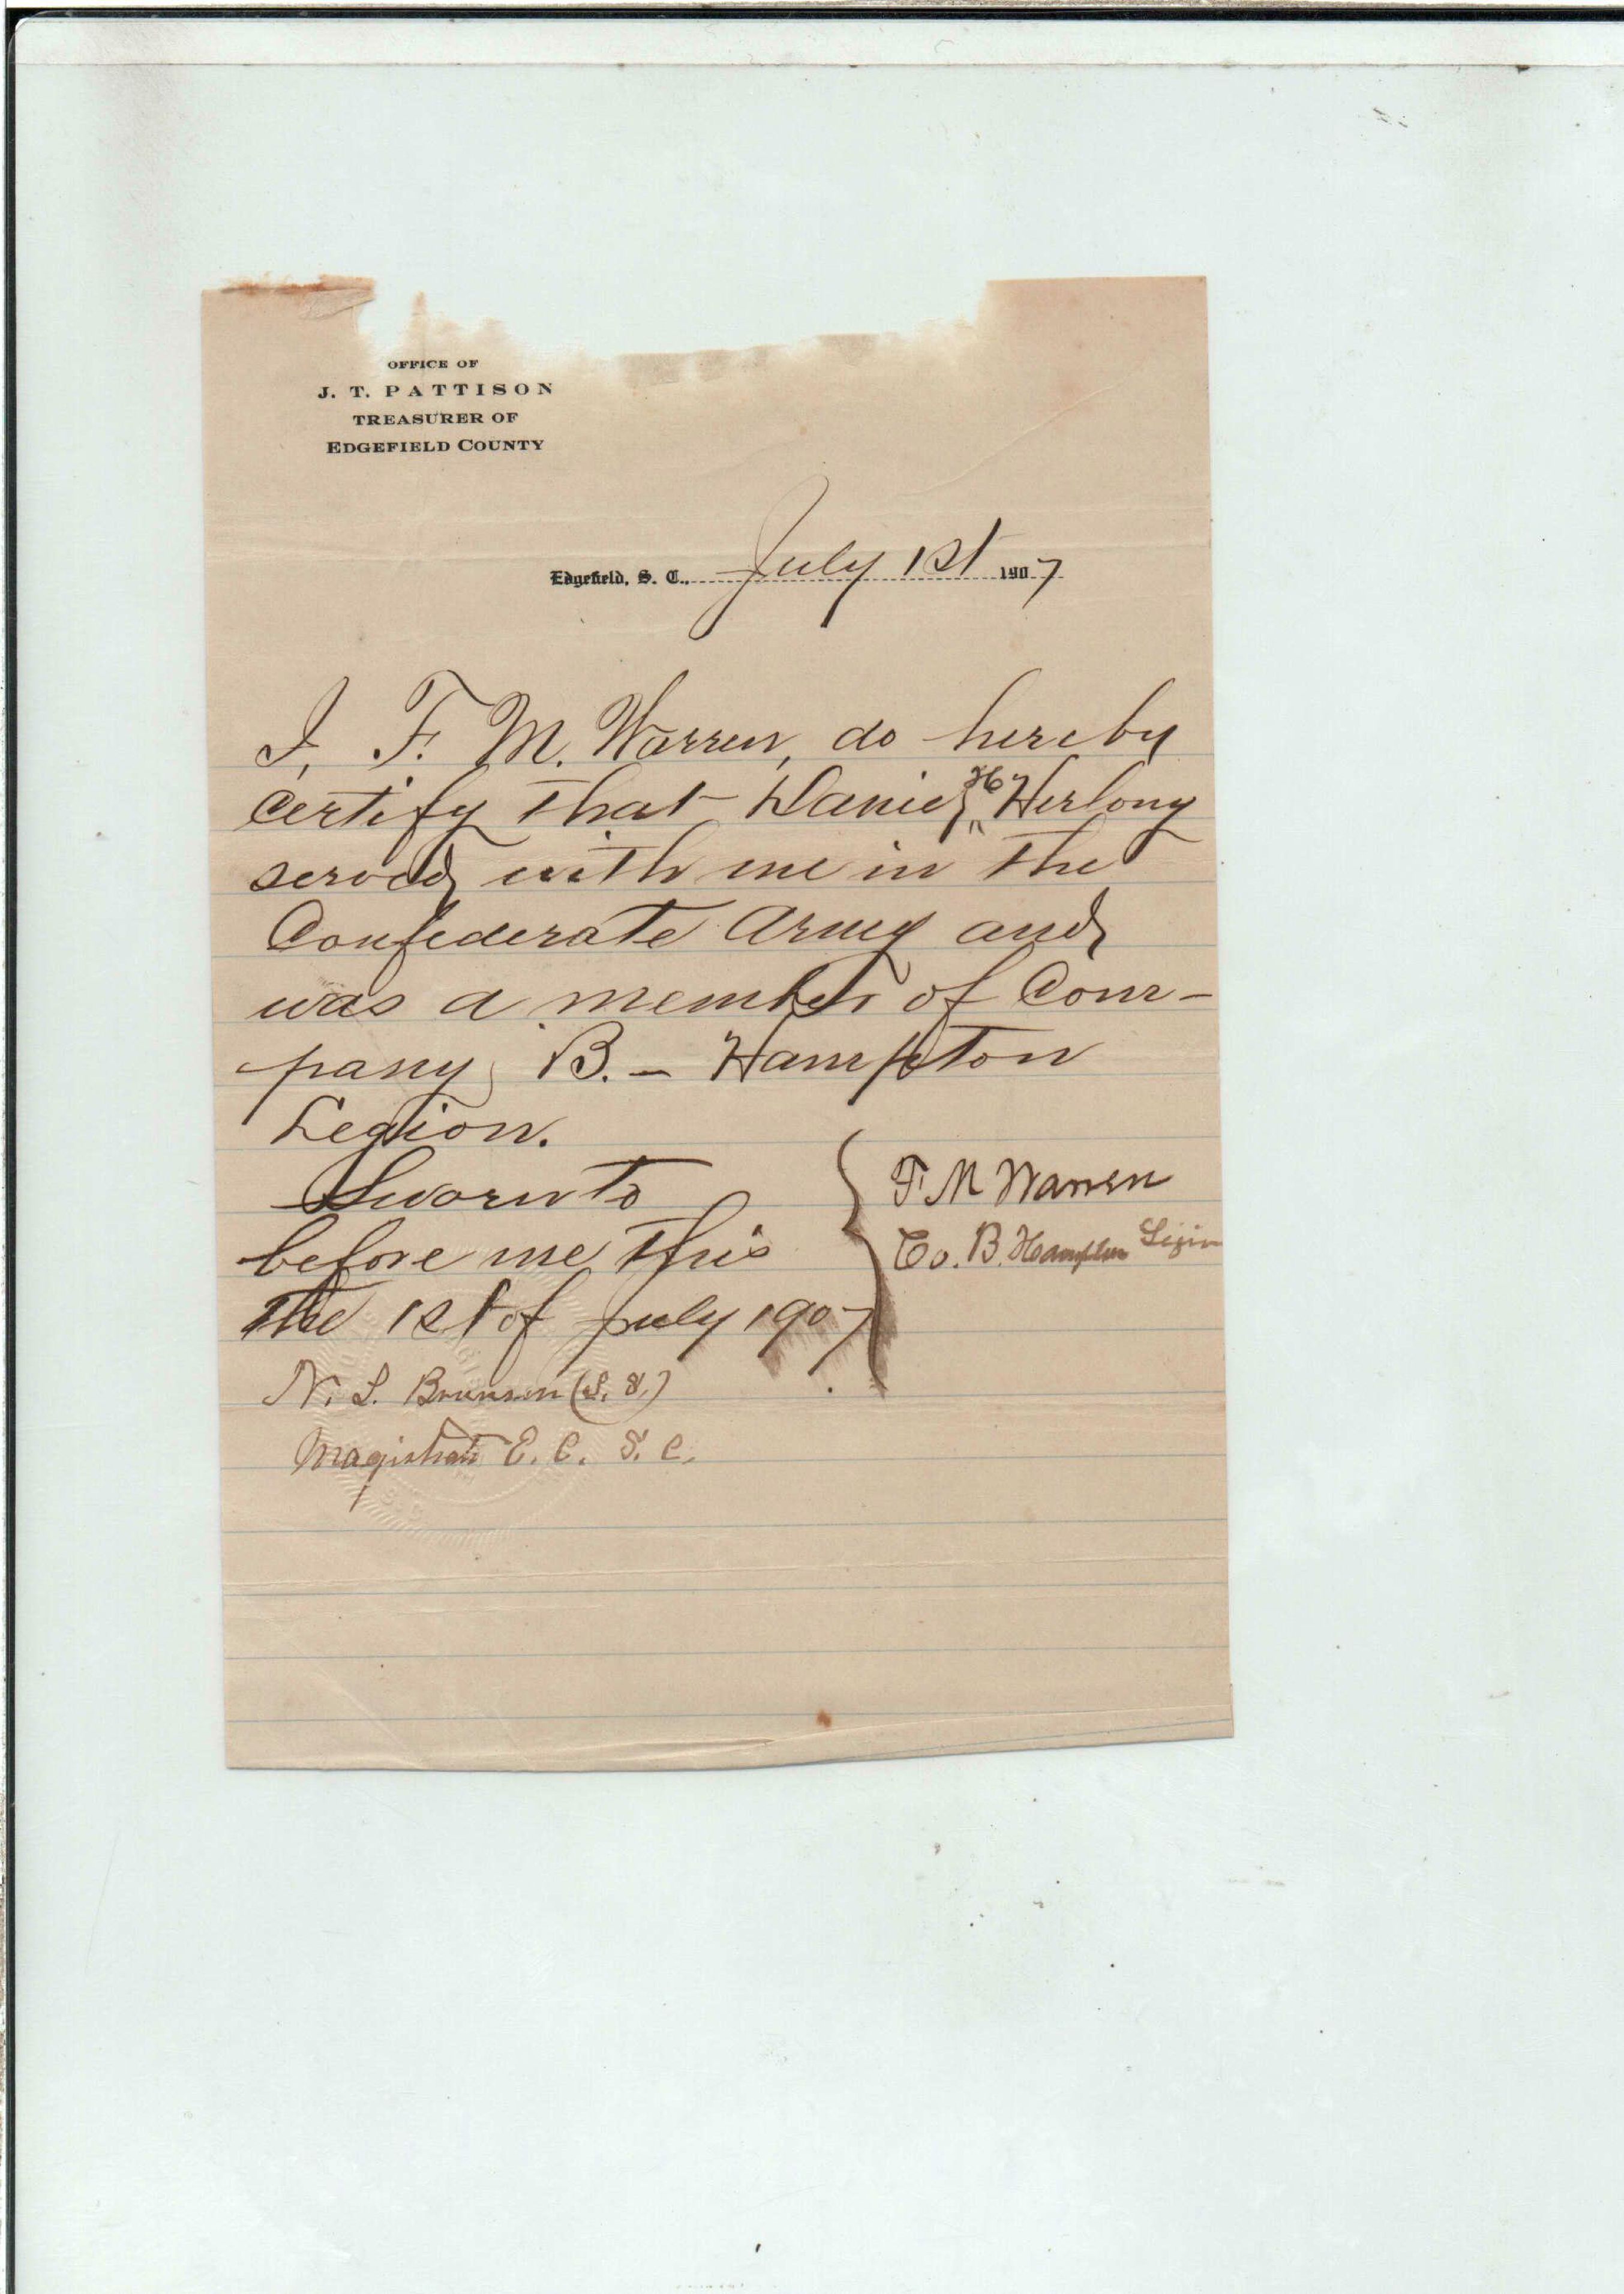 OFFICE OF
J. T. PATTISON
TREASURER OF
EDGEFIELD COUNTY
Edgefield, S. C., July 1st 1907
I, F. M. Warren, do hereby
certify that Daniel H Herlong
served with me in the
Confederate Army and
was a member of Com-
pany B. – Hampton
Legion.
Sworn to
before me this
the 1st of July 1907
F M Warren
Co. B. Hampton Legion
N. L. Brunson (L. S.)
Magistrate E. C. S. C.